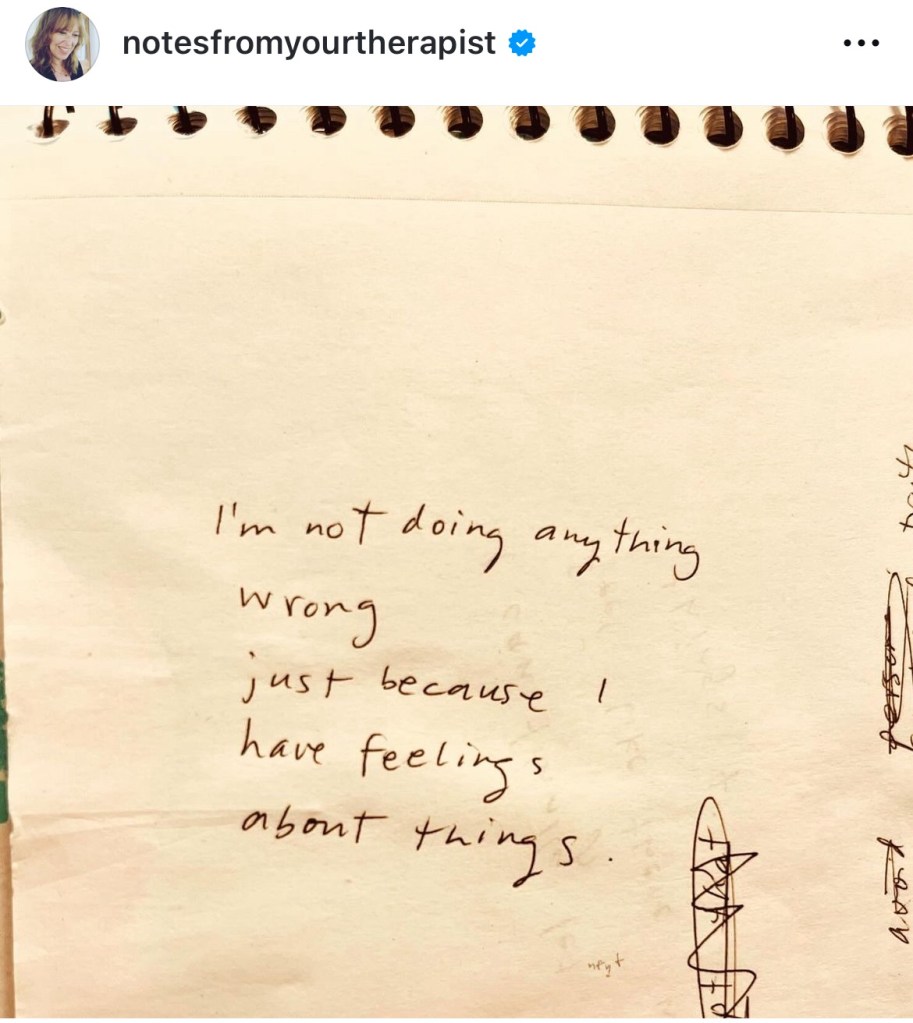 notesfromyourtherapist
I'm not doing anything
wrong
just because I
have feelings
about things.
avoid
person